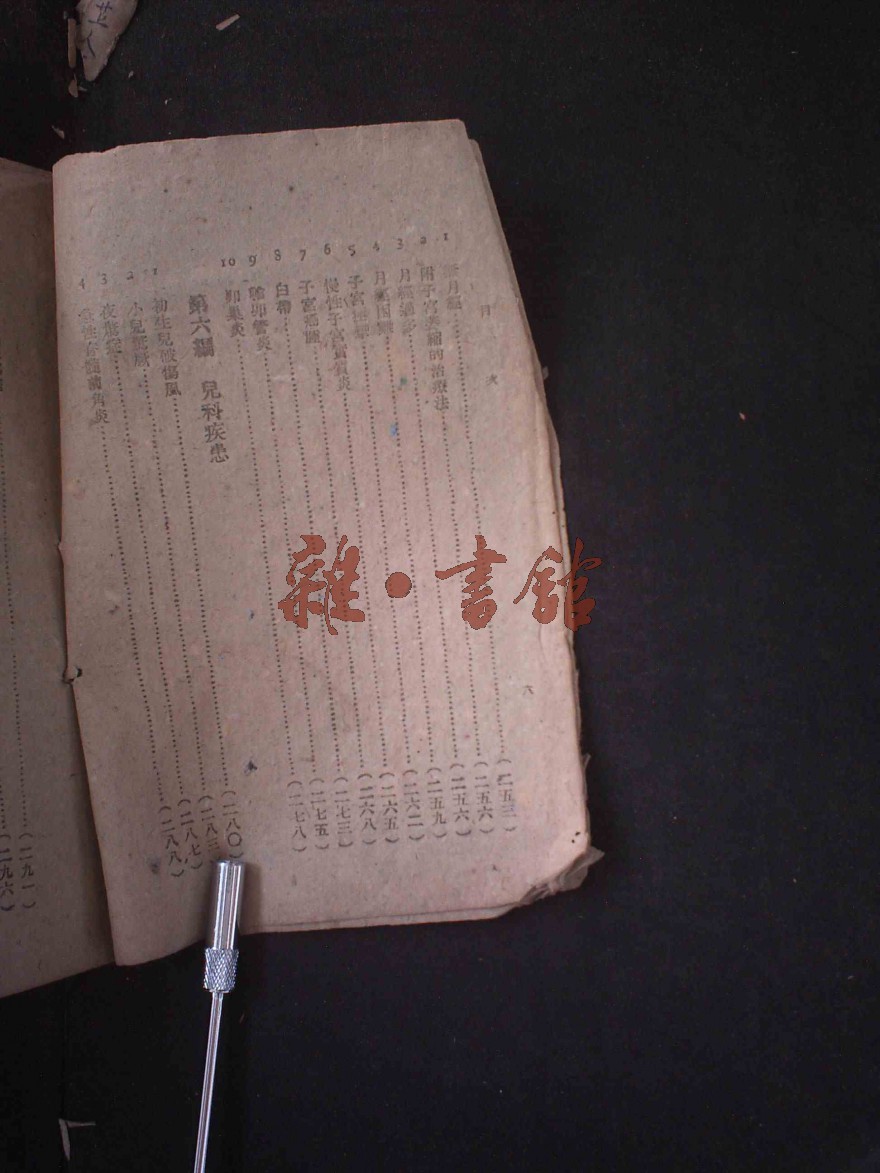 目次 六
1 無月經 (二五三)
2 附子宮萎縮的治療法 (二五六)
3 月經過多 (二五六)
4 月經困難 (二五九)
5 子宮 (二六二)
6 慢性子宮實質炎 (二六五)
7 子宮 (二六八)
8 白帶 (二七三)
9 輸卵管炎 (二七五)
10 卵巢炎 (二七八)
第六編 兒科疾患
1 初生兒破傷風 (二八〇)
2 小兒驚厥 (二八三
3 夜驚症 (二八七)
4 急性脊髓前角炎 (二八八)
(二九一)
(二九六)
雜·書館